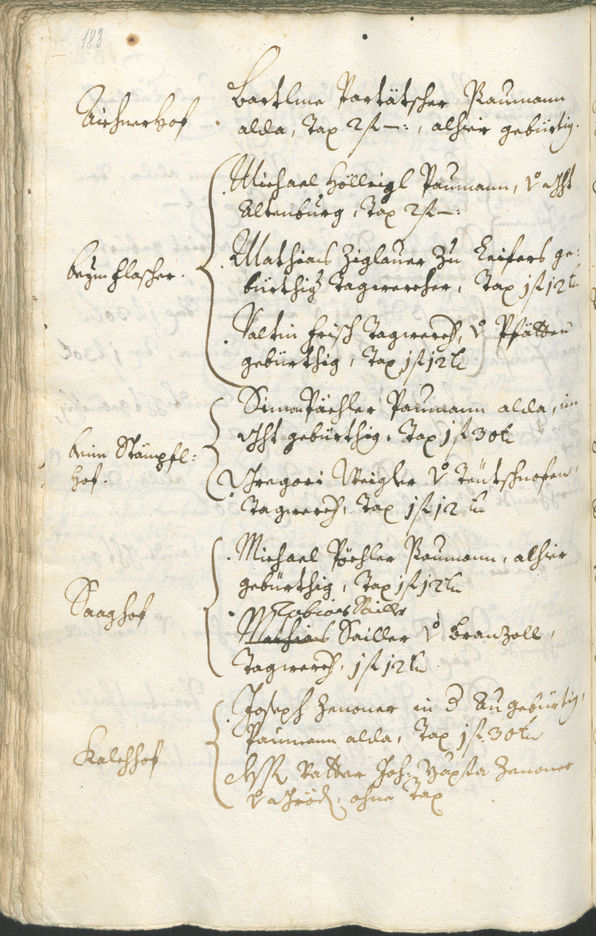 183
Aichnerhof
Bartlme Partätscher Paumann
alda, Tax 2 f —: , alhier gebürtig.
beym Flascher.
Michael Hölleigl Paumann, v
Altenburg, Tax 2 f —:
Mathias Ziglauer zu Leifers ge:
bürthig Tagwercher, Tax 1 f 12 k
Valtin Frisch Tagwerch, v Pfätten
gebürthig, Tax 1 f 12 k
beim Stämpfl:
hof.
Simon Pächler Paumann alda, im
gebürthig, Tax 1 f 30 k
Gregori Weigler v Teütschnofen,
Tagwerch, Tax 1 f 12 k
Saaghof
Michael Pöchler Paumann, alhier
gebürthig, Tax 1 f 12 k
Tobias Sailler
Mathias Sailler v Branzoll,
Tagwerch, 1 f 12 k
Kalchhof
Joseph Zenoner in d Au gebürtig,
Paumann alda, Tax 1 f 30 k
Vatter Joh: Zenoner
v , ohne Tax